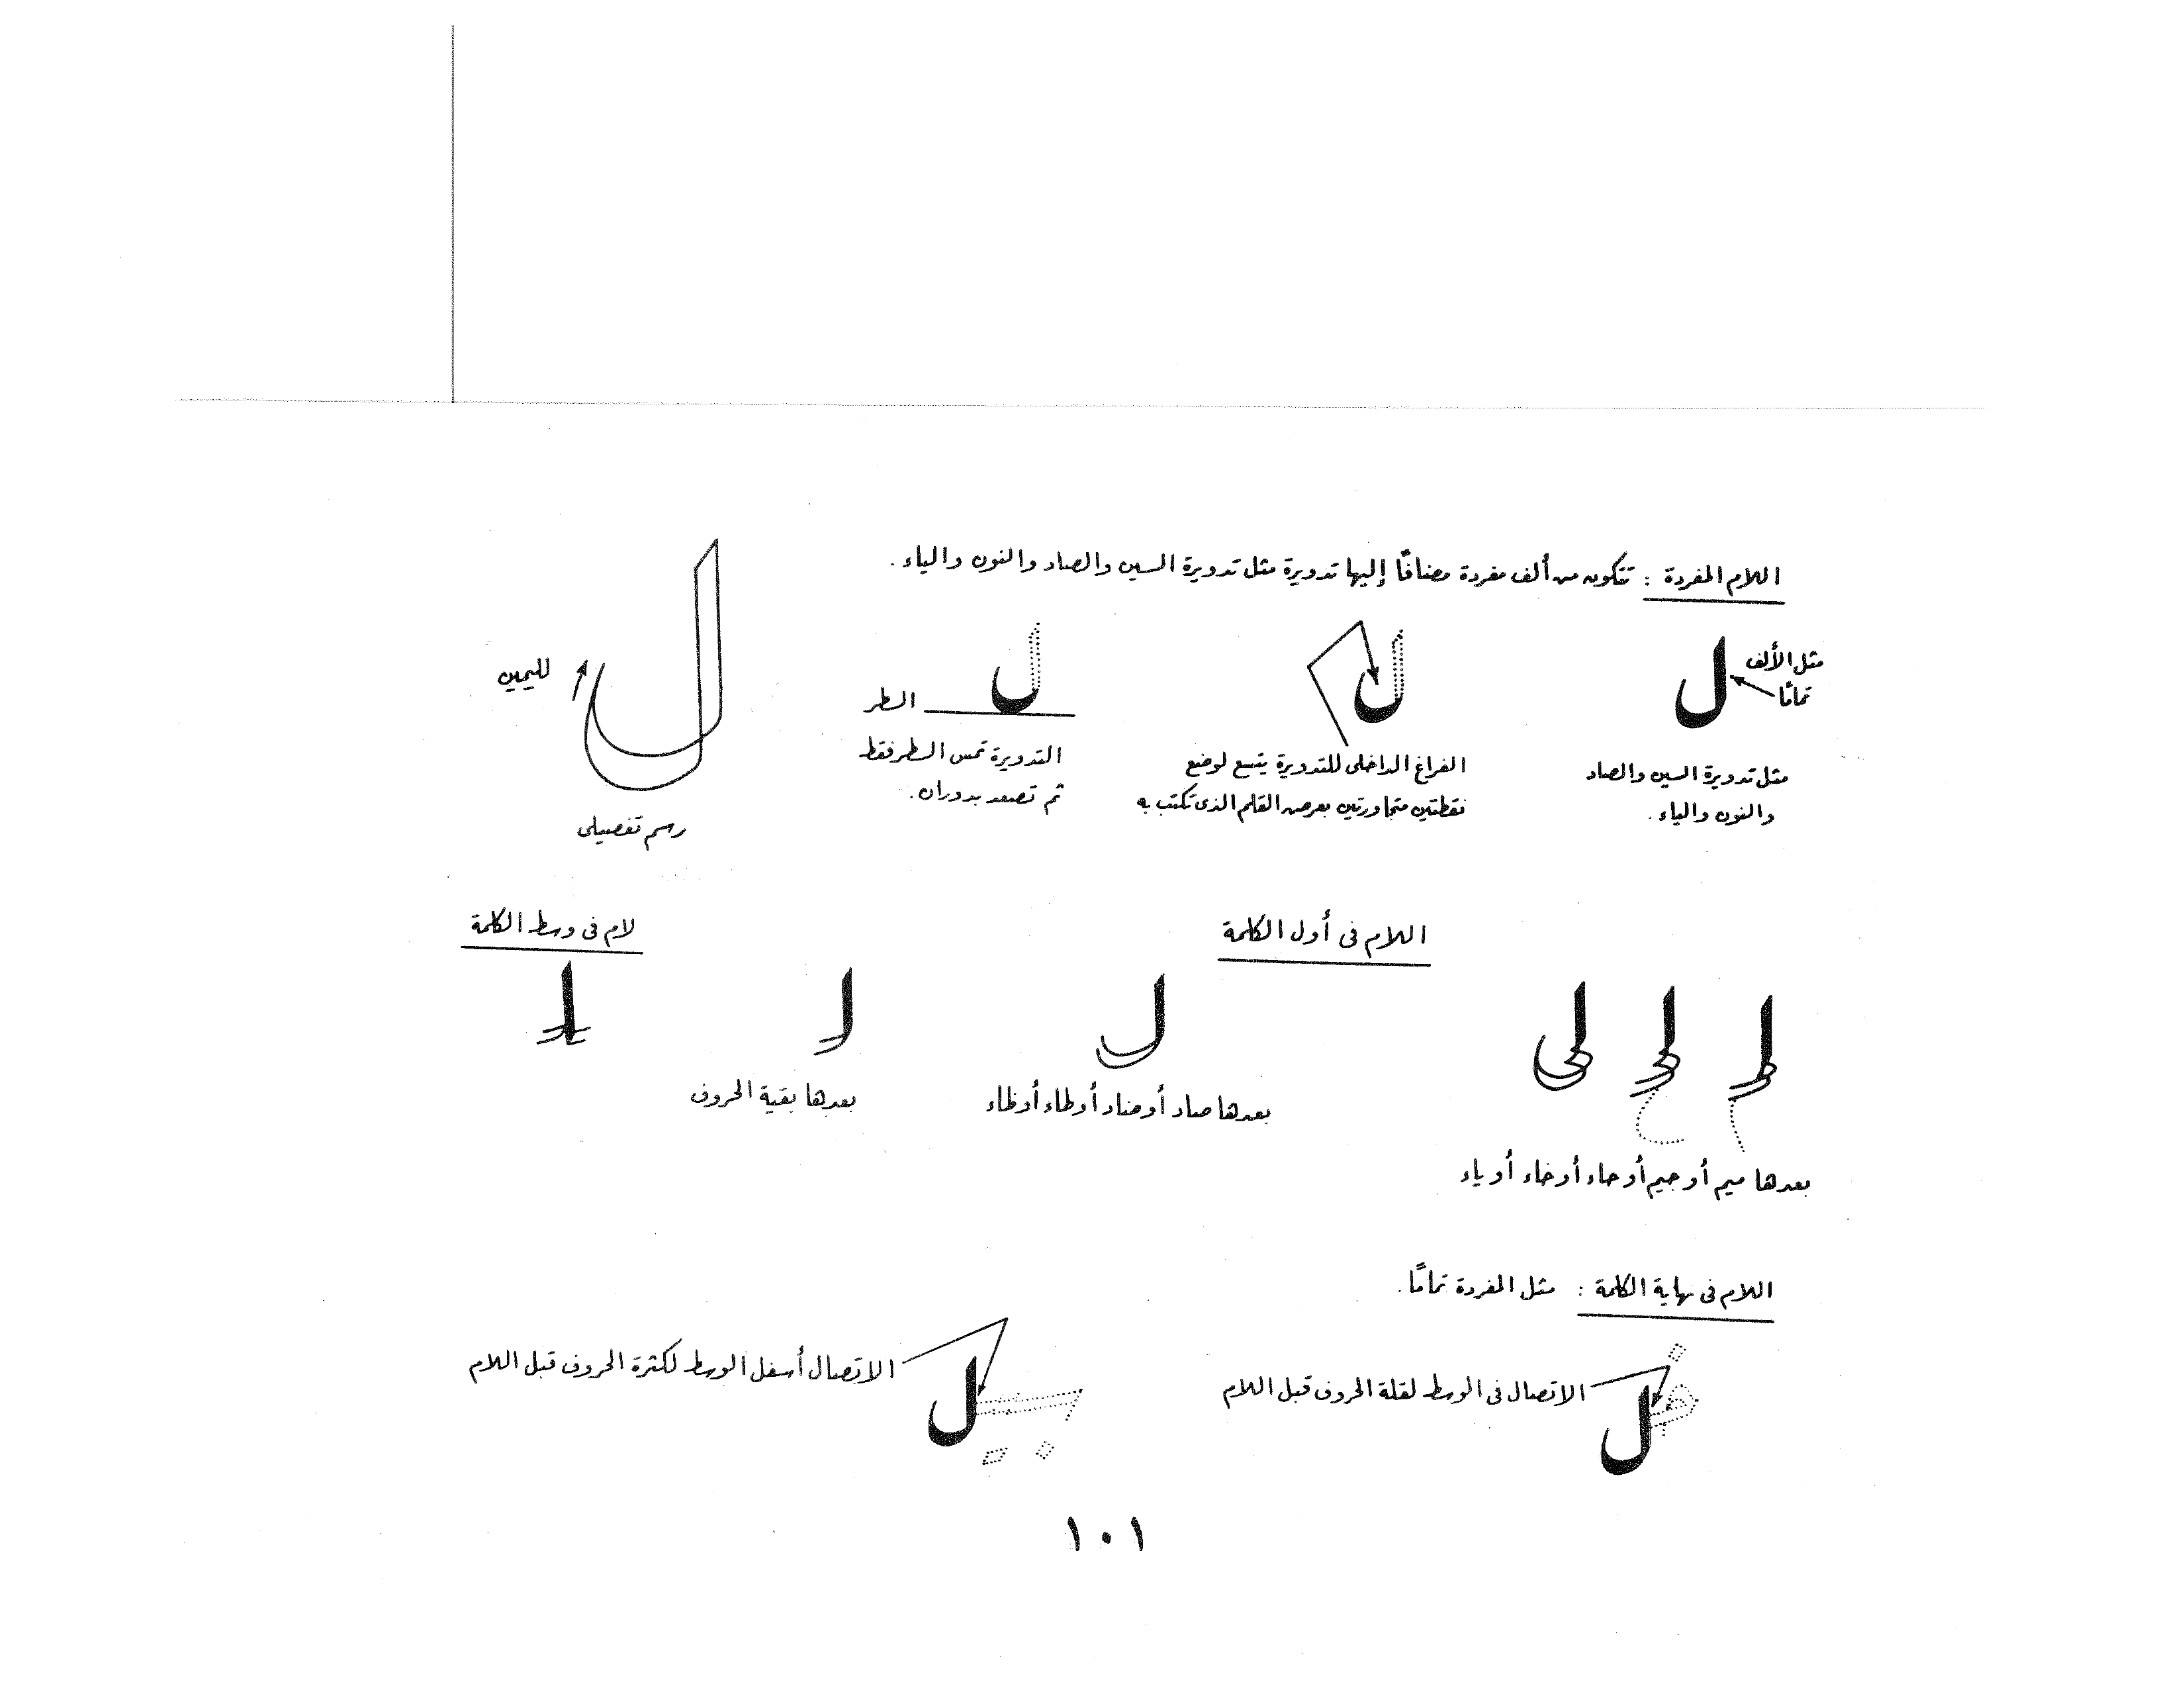 اللام المفردة : تتكون من ألف مفردة مضافًا إليها تدويرة مثل تدويرة السين والصاد والنون والياء .
مثل الألف
تمامًا
ل
مثل تدويرة السين والصاد
والنون والياء .
ل
الفراغ الداخلى للتدويرة يتسع لوضع
نقطتين متجاورتين بعرض القلم الذى تكتب به
ل
السطر
التدويرة تمس السطر فقط
ثم تصعد بدوران .
ل
لليمين
رسم تفصيلى
اللام فى أول الكلمة
لام فى وسط الكلمة
بعدها ميم أو جيم أو حاء أو خاء أو ياء
بعدها صاد أو ضاد أو طاء أو ظاء
بعدها بقية الحروف
اللام فى نهاية الكلمة : مثل المفردة تمامًا .
الاتصال فى الوسط لقلة الحروف قبل اللام
الاتصال أسفل الوسط لكثرة الحروف قبل اللام
١٠١